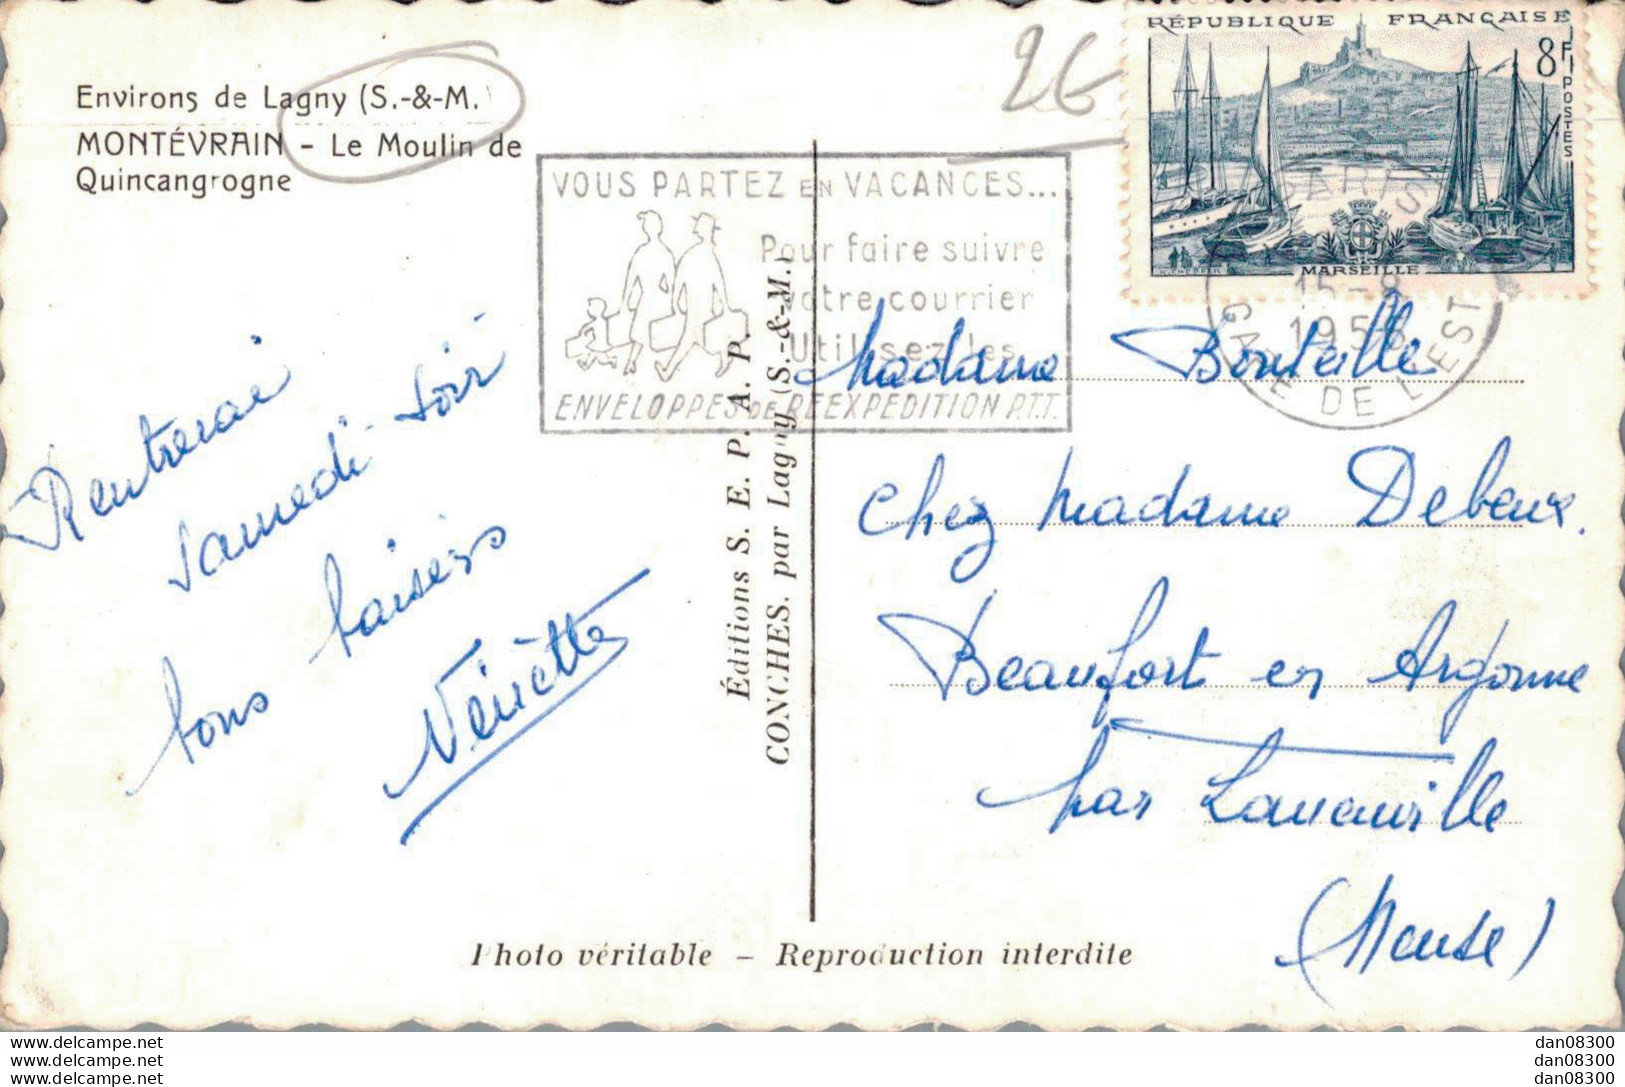 Environs de Lagny (S.-&-M.)
MONTÉVRAIN - Le Moulin de
Quincangrogne
26
RÉPUBLIQUE FRANÇAISE
8F
POSTES
MARSEILLE
VOUS PARTEZ EN VACANCES...
Pour faire suivre
votre courrier
Utilisez les
ENVELOPPES DE REEXPEDITION P.T.T.
PARIS
15-8
GARE DE L'EST
Rentrerai
samedi soir
bons baisers
Éditions S. E. P. A. P.
CONCHES. par Lagny (S.-&-M.)
Madame Bouteille
chez Madame Debeux.
Beaufort en Argonne
par
(Meuse)
Photo véritable - Reproduction interdite
www.delcampe.net
www.delcampe.net
www.delcampe.net
dan08300
dan08300
dan08300